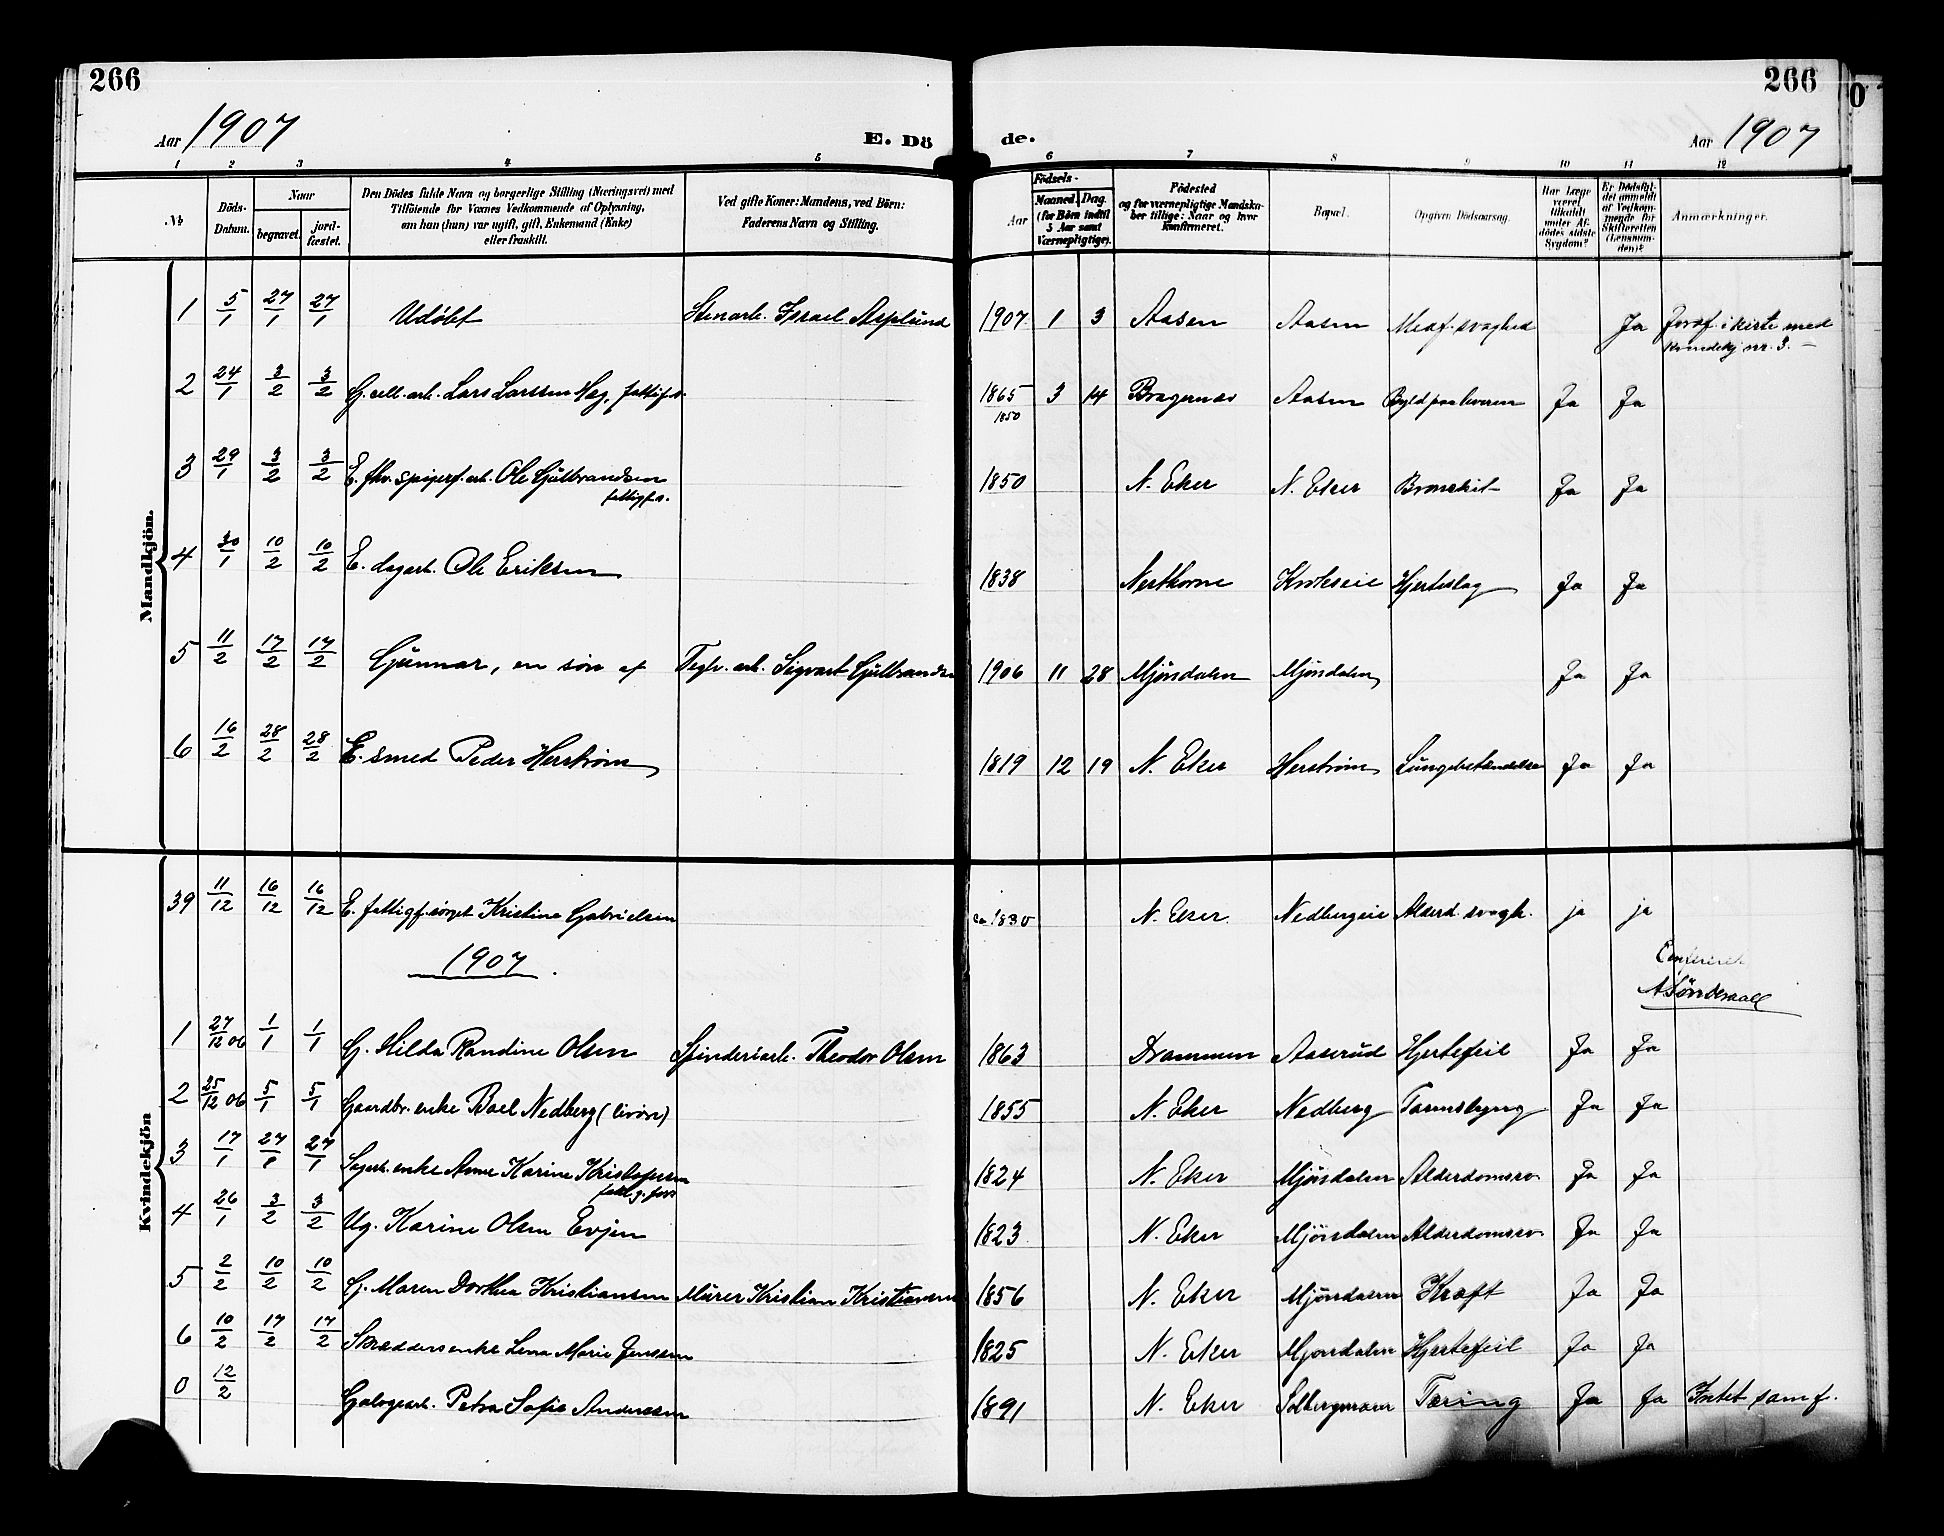 266
266
Aar 1907
E. Dö
de.
Aar 1907
1 2 3 4 5 6 7 8 9 10 11 12
No
Döds-
Datum.
Naar
begravet.
jord-
fæstet.
Den Dödes fulde Navn og borgerlige Stilling (Næringsvei) med
Tilföiende for Voxnes Vedkommende af Oplysning,
om han (hun) var ugift, gift, Enkemand (Enke)
eller fraskilt.
Ved gifte Koner: Mandens, ved Börn:
Faderens Navn og Stilling.
Födsels-
Aar
Maaned. Dag.
(for Börn indtil
5 Aar samt
Værnepligtige).
Födested
og for værnepligtige Mandska-
ber tillige: Naar og hvor
konfirmeret.
Bopæl.
Opgiven Dödsaarsag.
Har Læge
været
tilkaldt
under Af-
dödes sidste
Sygdom?
Er Dödsfal-
det anmeldt
af Vedkom-
mende for
Skifteretten
(Lensman-
den)?
Anmærkninger.
Mandkjön.
1 5/1 27/1 27/1 Udøbt Stenarb. Israel Asplund 1907 1 3 Aasen Aasen Medf. svaghed Ja Jordf. i kiste med
Kvindekj nr. 3.
2 24/1 3/2 3/2 G. cell. arb. Lars Larssen Hag, fattigfs. 1865 3 14 Bragernæs Aasen Byld paa leveren Ja Ja
1850
3 29/1 3/2 3/2 E. fhv. spigerf. arb. Ole Gulbrandsen 1850 N. Eker N. Eker Bronchit Ja Ja
fattigfs.
4 30/1 10/2 10/2 E. dagarb. Ole Eriksen 1838 Hjerteslag Ja Ja
5 11/2 17/2 17/2 Gunnar, en søn af Teglv. arb. Sigvart Gulbrandsen 1906 11 28 Mjøndalen Mjøndalen Ja Ja
6 16/2 28/2 28/2 E. smed Peder Herstrøm 1819 12 19 N. Eker Herstrøm Lungebetændelse Ja Ja
Kvindekjön
39 11/12 16/12 16/12 E. fattigf. Kristine Gabrielsen ca 1830 N. Eker Nedbergeie Alderd. svagh. ja ja
1907
1 27/12 06 1/1 1/1 G. Hilda Randine Olsen Spinderiarb. Theodor Olsen 1863 Drammen Aaserud Hjertefeil Ja Ja
2 25/12 06 5/1 5/1 Gaardbr. enke Boel Nedberg (livøre) 1855 N. Eker Nedberg Tarmslyng Ja Ja
3 17/1 27/1 27/1 Sagarb. enke Anne Karine Kristofersen 1824 N. Eker Mjøndalen Alderdomssv Ja Ja
fattigfors
4 26/1 3/2 3/2 Ug. Karine Olsen Evjen 1823 N. Eker Mjøndalen Alderdomssv Ja Ja
5 2/2 10/2 10/2 G. Maren Dorthea Kristiansen Murer Kristian Kristiansen 1856 N. Eker Mjøndalen Kræft Ja Ja
6 10/2 17/2 17/2 Skræddersenke Lena Marie Jenssen 1825 N. Eker Mjøndalen Hjertefeil Ja Ja
0 12/2 Petra Sofie Anderssen 1891 N. Eker Tæring Ja Ja Intet samf.